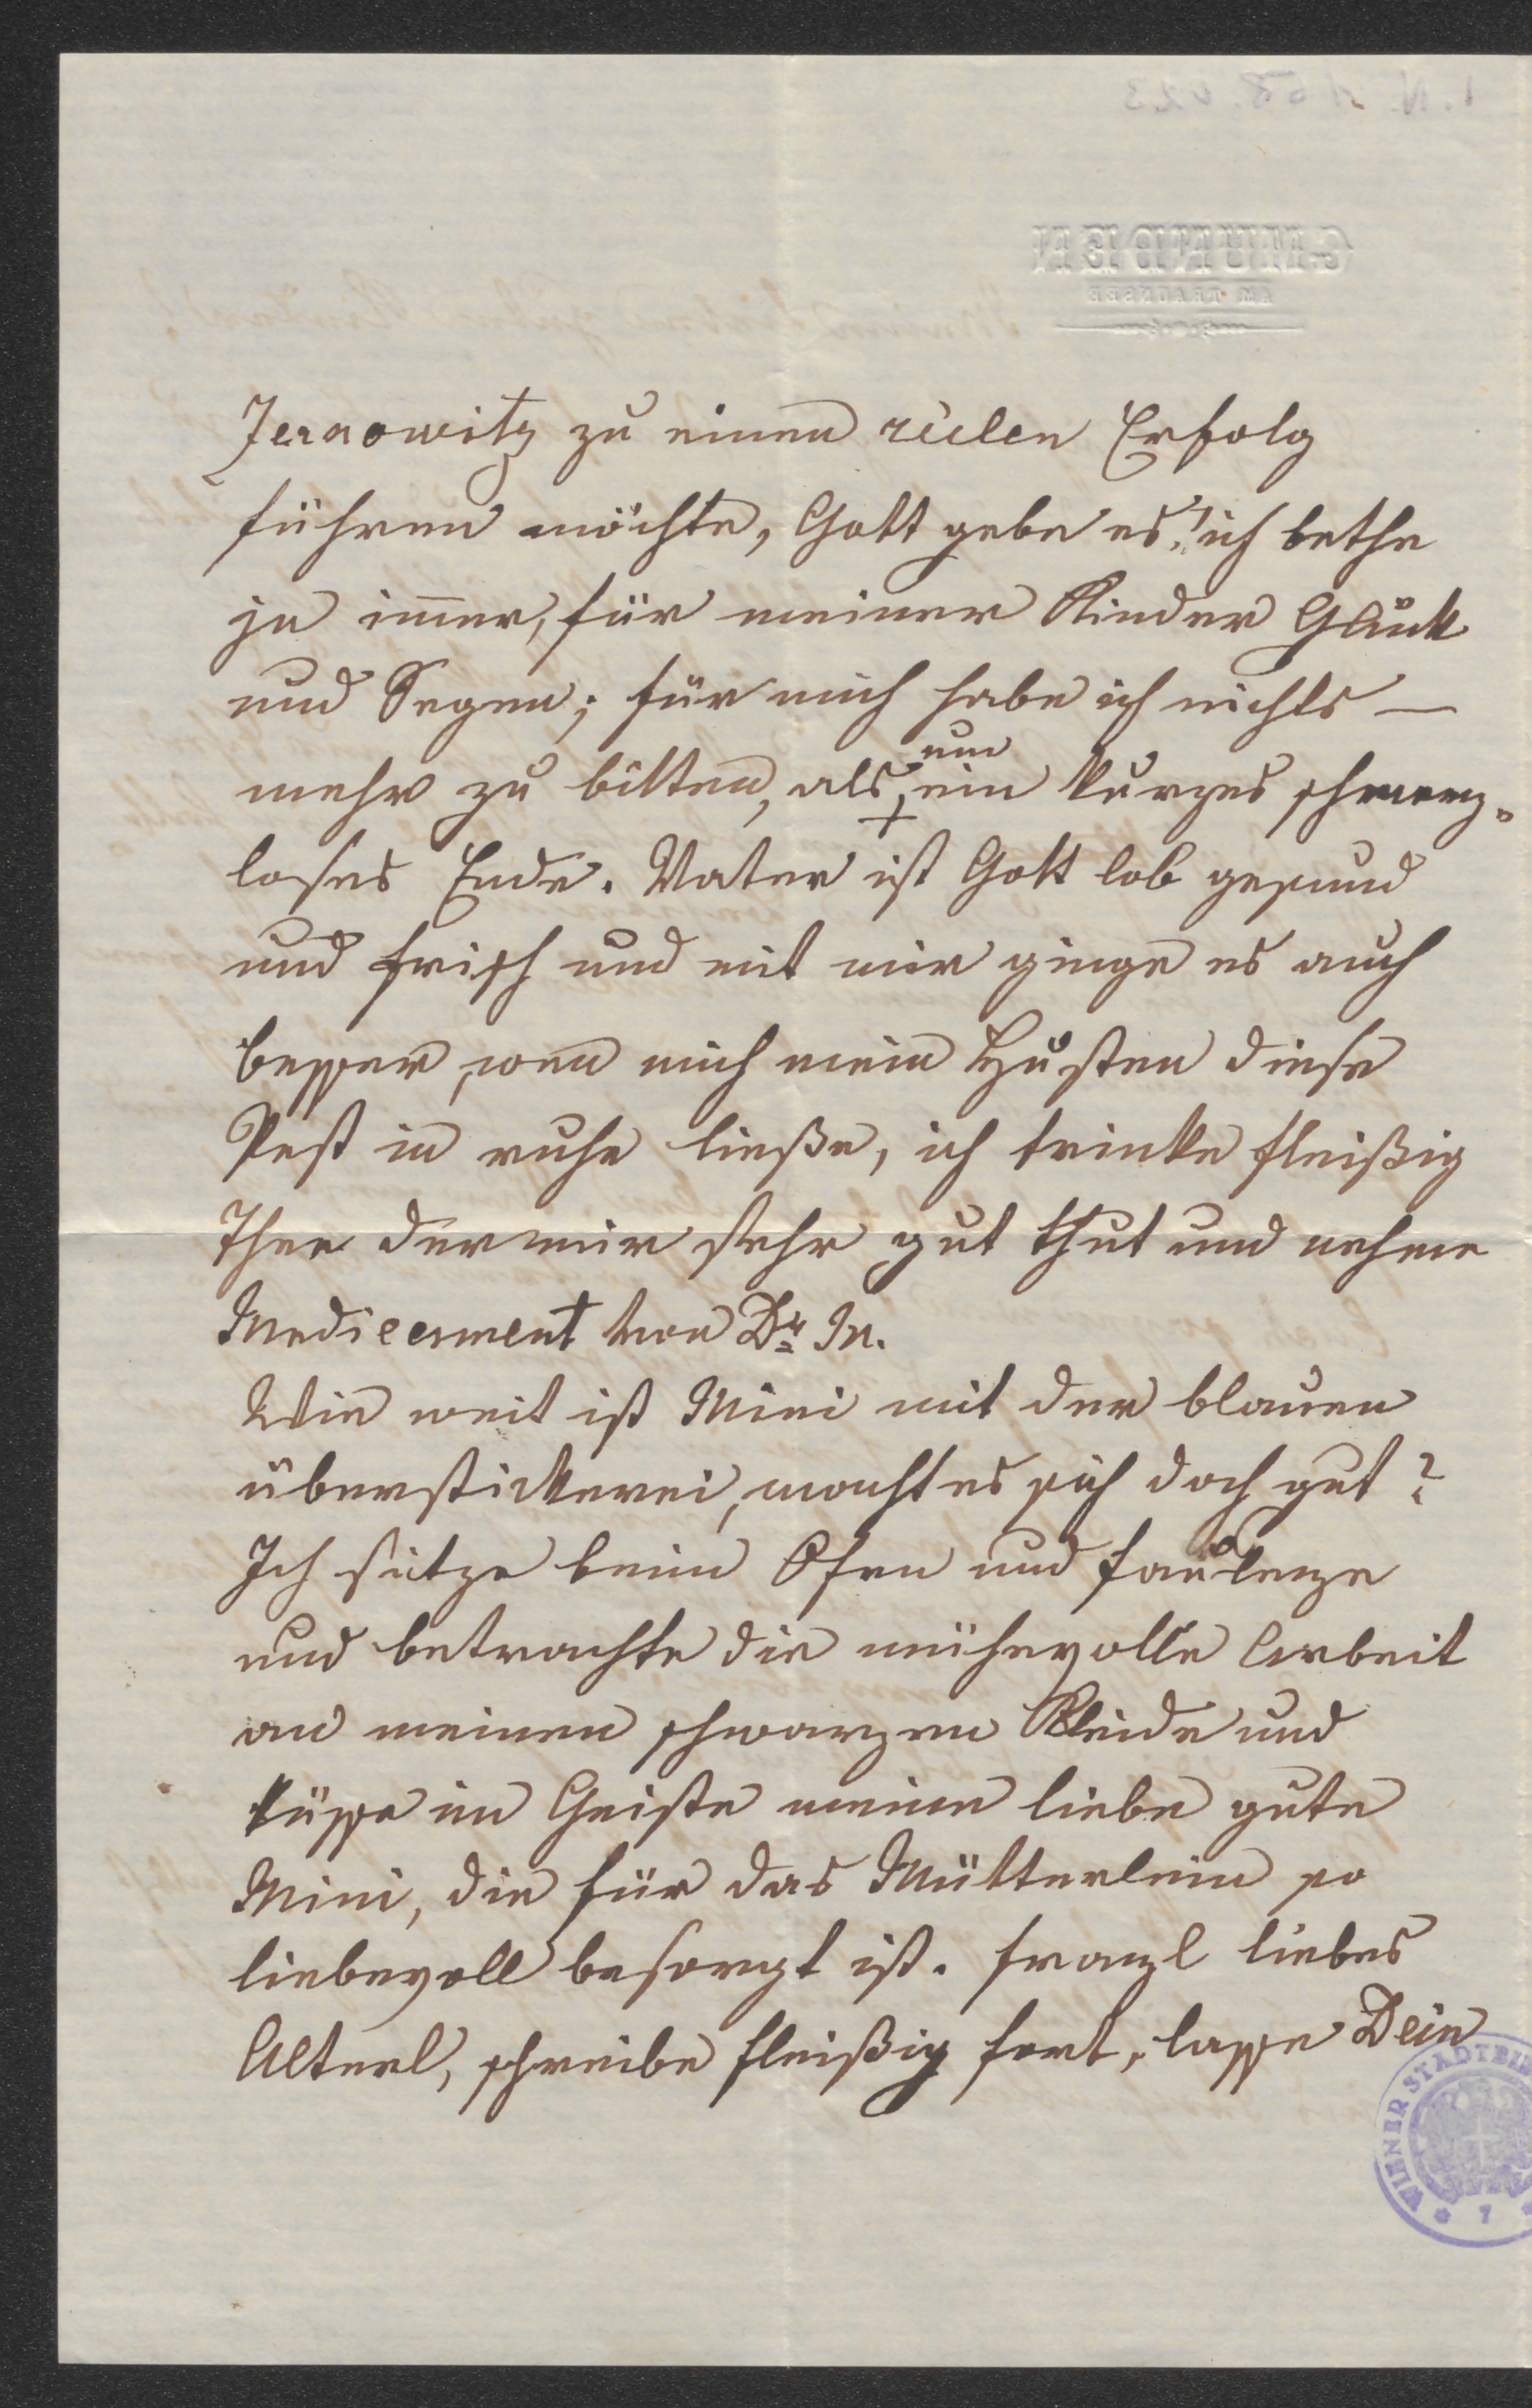 G. MUNDEN
AM TRAUNSEE
Jernowitz zu einen reelen Erfolg
führen möchte, Gott gebe es! ich bethe
ja im̄er, für meiner Kinder Glück
und Segen; für mich habe ich nichts —
mehr zu bitten, als um ein kurzes schmerz-
loses Ende. Vater ist Gott lob gesund
und frisch und mit mir ginge es auch
besser, wen̄ mich mein Husten diese
Pest in ruhe ließe, ich trinke fleißig
Thee der mir sehr gut thut und nehme
Medicament von Dr. M.
Wie weit ist Mini mit der blauen
überstickerei, macht es sich doch gut?
Ich sitze beim Ofen und faulenze
und betrachte die mühevolle Arbeit
an meinen schwarzen Kleide und
küsse im Geiste meine liebe gute
Mini, die für das Mütterlein so
liebevoll besorgt ist. Franzl liebes
Alterl, schreibe fleißig fort, lasse Dein
WIENER STADTBI
7